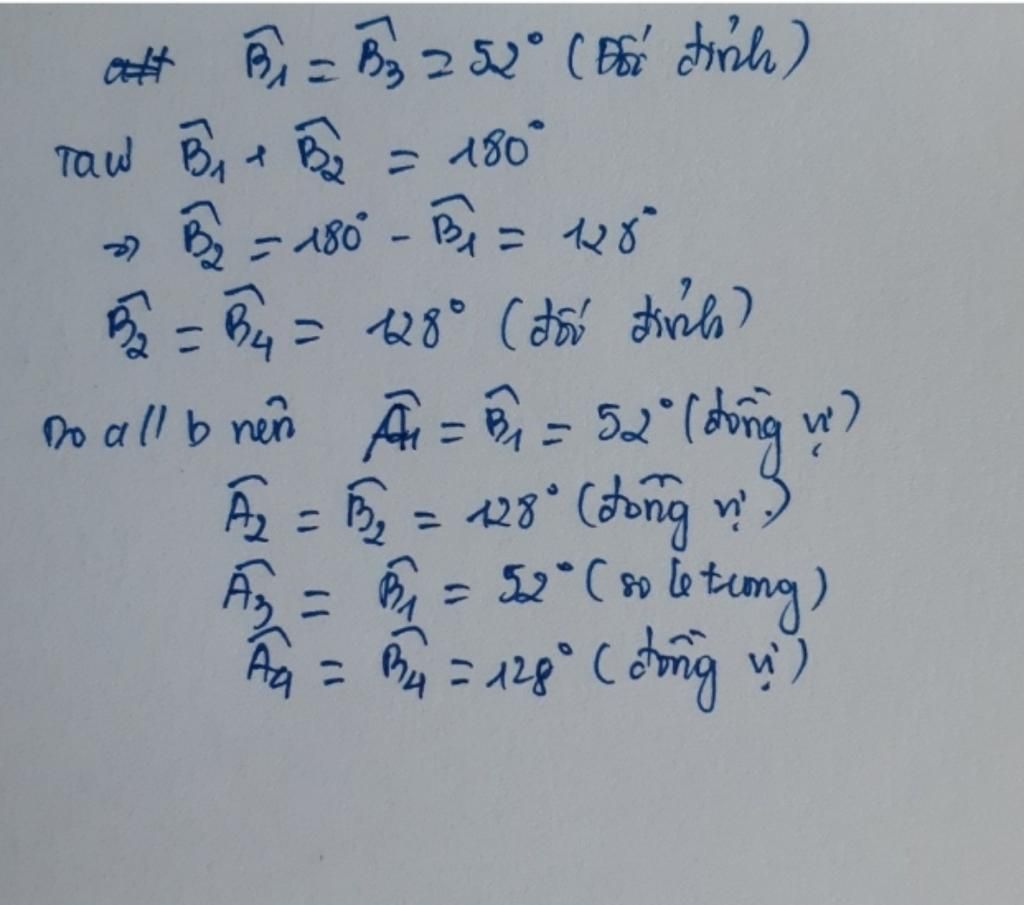 B̂₁ = B̂₃ = 52° (Đối đỉnh)
Ta có B̂₁ + B̂₂ = 180°
=> B̂₂ = 180° - B̂₁ = 128°
B̂₂ = B̂₄ = 128° (đối đỉnh)
Do a // b nên Â₁ = B̂₁ = 52° (đồng vị)
Â₂ = B̂₂ = 128° (đồng vị)
Â₃ = B̂₁ = 52° (so le trong)
Â₄ = B̂₄ = 128° (đồng vị)